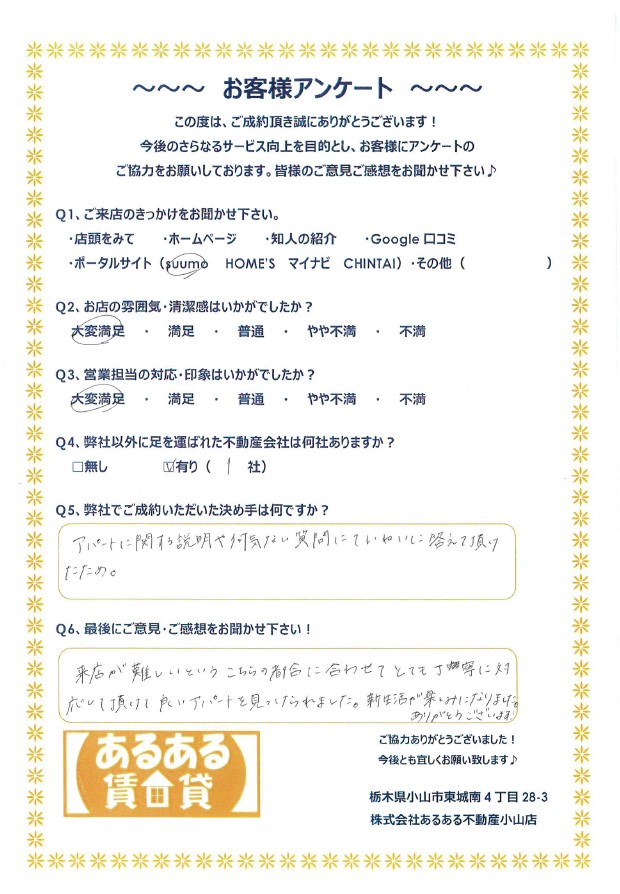 ～～～ お客様アンケート ～～～
この度は、ご成約頂き誠にありがとうございます！
今後のさらなるサービス向上を目的とし、お客様にアンケートの
ご協力をお願いしております。皆様のご意見ご感想をお聞かせ下さい♪
Q1、ご来店のきっかけをお聞かせ下さい。
・店頭をみて ・ホームページ ・知人の紹介 ・Google 口コミ
・ポータルサイト（suumo HOME'S マイナビ CHINTAI）・その他（ ）
Q2、お店の雰囲気・清潔感はいかがでしたか？
大変満足 ・ 満足 ・ 普通 ・ やや不満 ・ 不満
Q3、営業担当の対応・印象はいかがでしたか？
大変満足 ・ 満足 ・ 普通 ・ やや不満 ・ 不満
Q4、弊社以外に足を運ばれた不動産会社は何社ありますか？
□無し ☑有り（ 1 社）
Q5、弊社でご成約いただいた決め手は何ですか？
アパートに関する説明や何気ない質問にていねいに答えて頂け
たため。
Q6、最後にご意見・ご感想をお聞かせ下さい！
来店が難しいというこちらの都合に合わせてとても丁寧に対
応して頂けて良いアパートを見つけられました。新生活が楽しみになります。
ありがとうございます。
あるある
賃貸
ご協力ありがとうございました！
今後とも宜しくお願い致します♪
栃木県小山市東城南４丁目 28-3
株式会社あるある不動産小山店